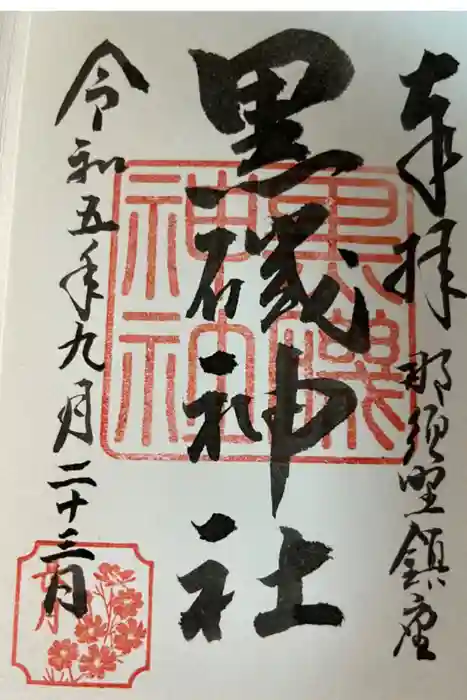 奉拝 那須野鎮座
黒磯神社
黒磯神社
令和五年九月二十三日